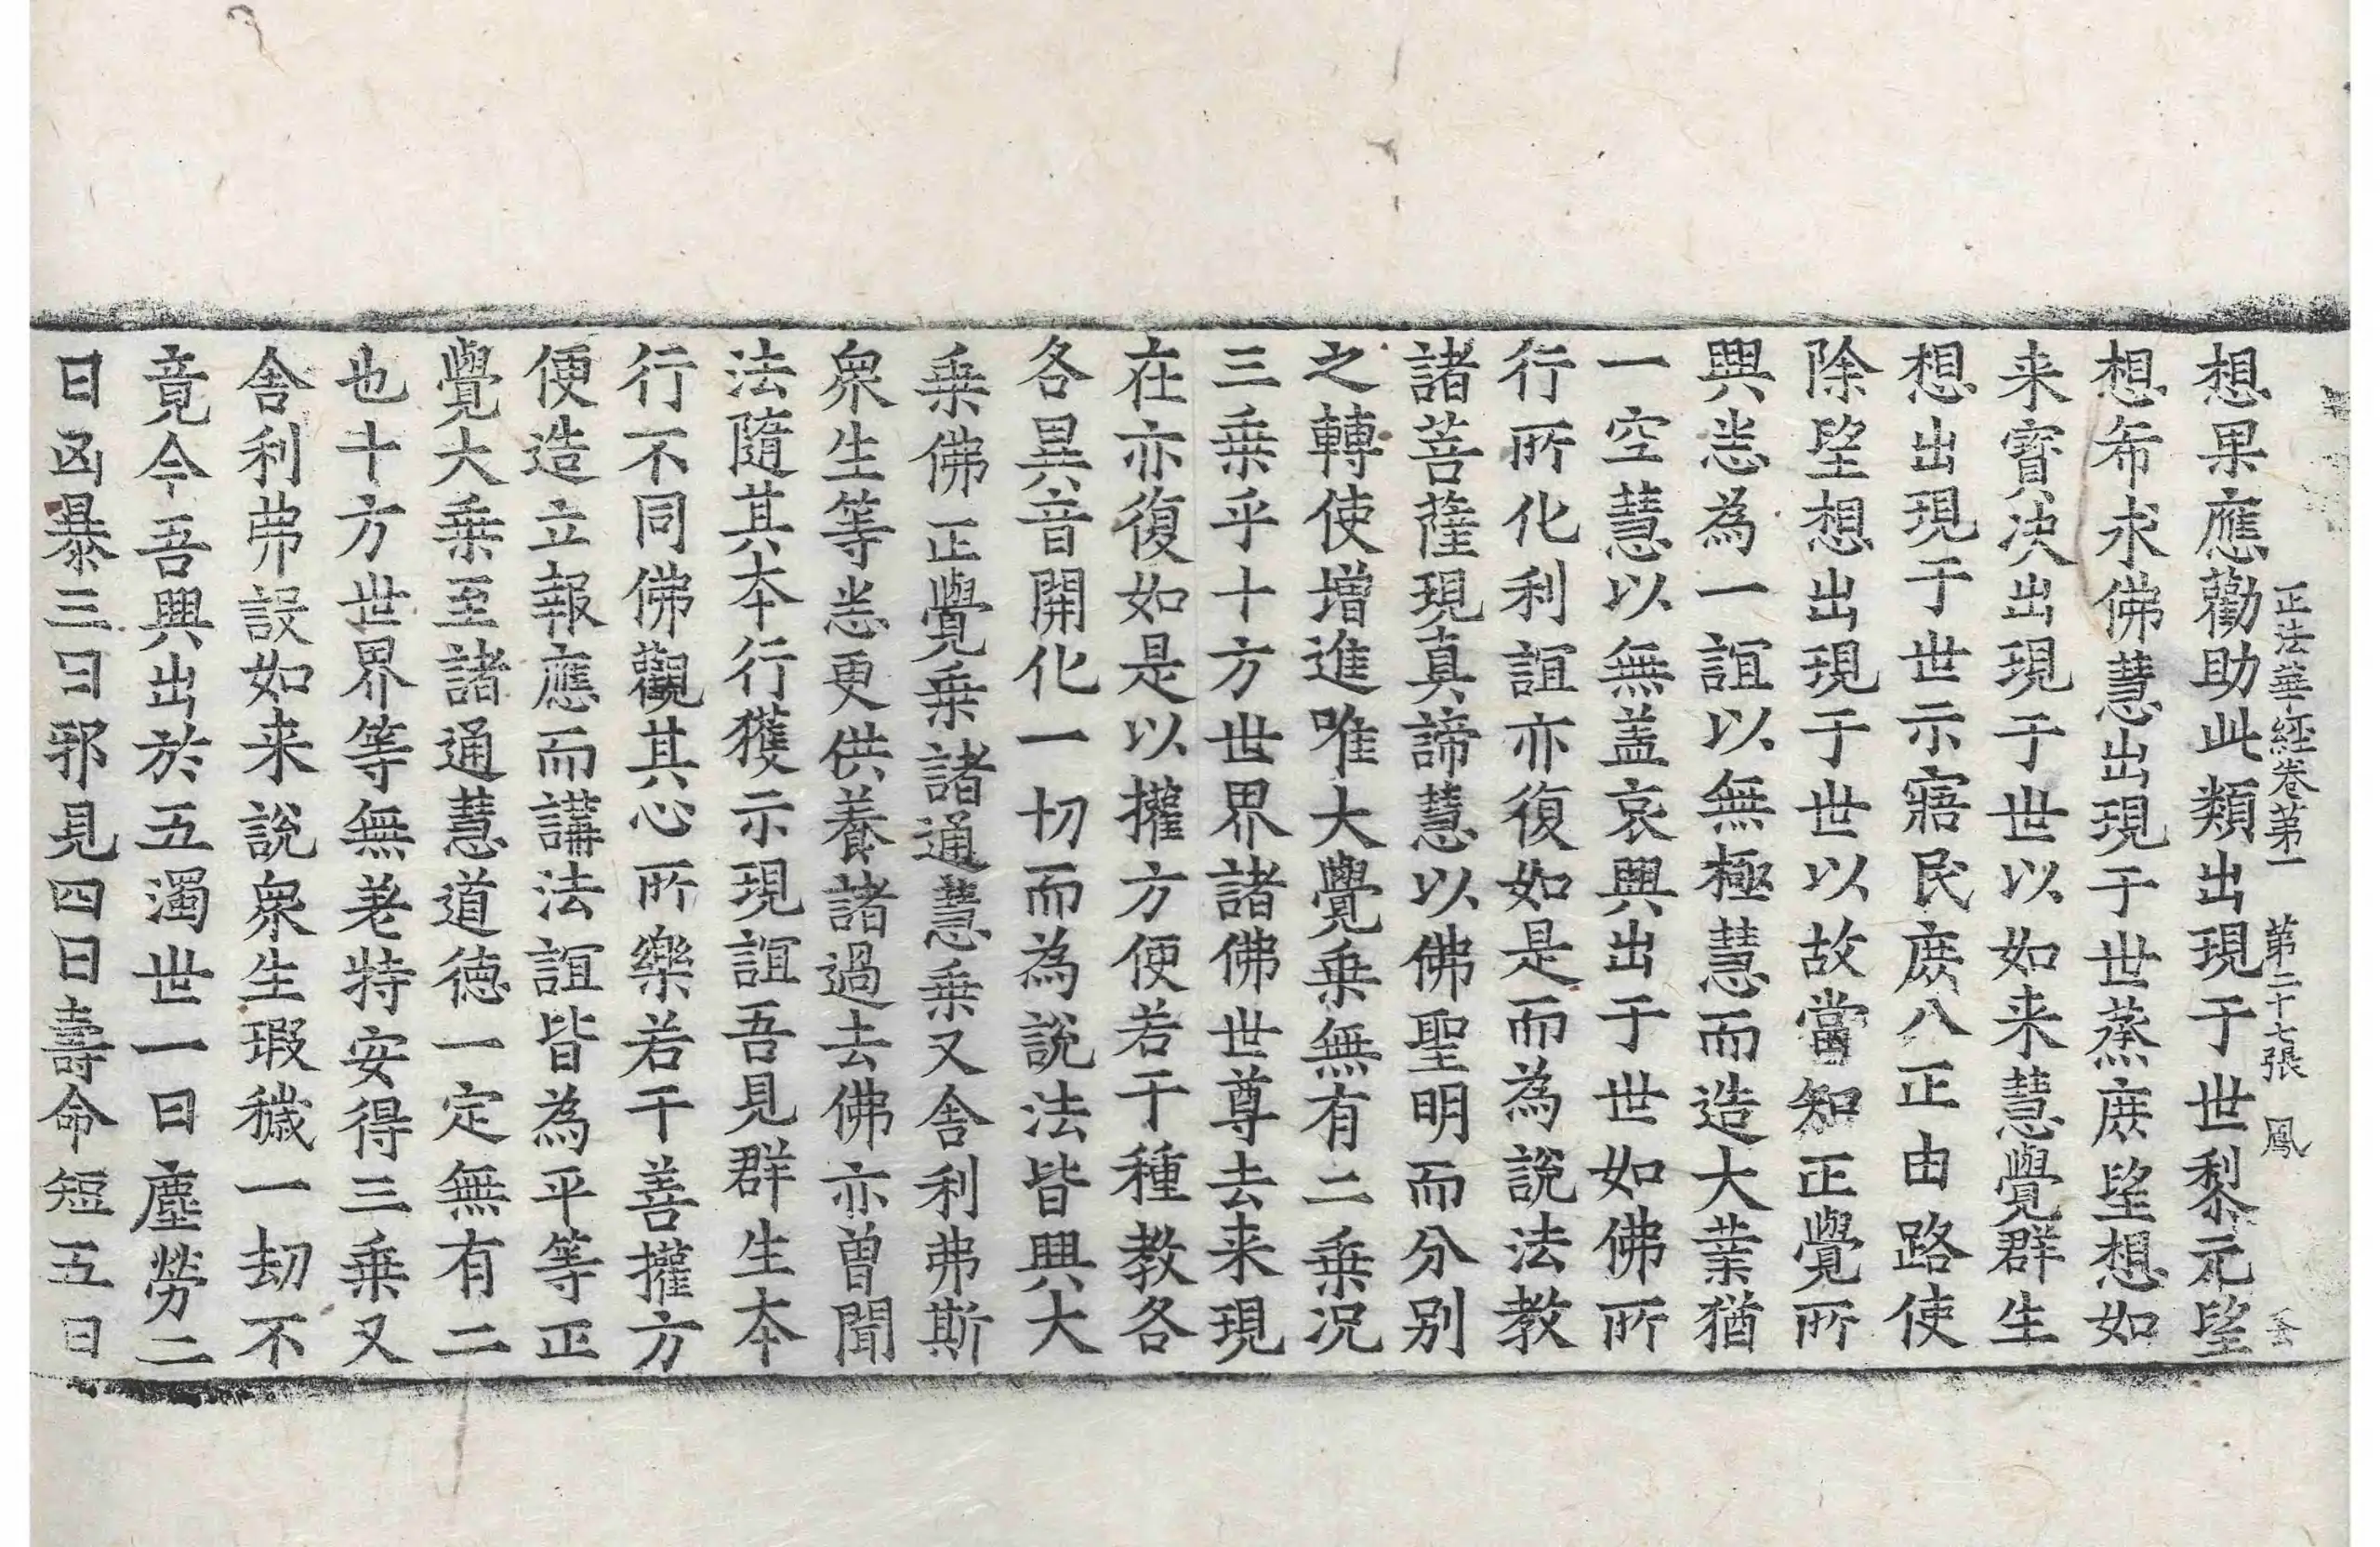 正法華經卷第一　第二十七張　鳳
想果應勸助此類出現于世黎元望
想希求佛慧出現于世蒸庶望想如
来寶決出現于世以如来慧覺群生
想出現于世示寤民庶八正由路使
除望想出現于世以故當知正覺所
興恙為一誼以無極慧而造大業猶
一空慧以無盖哀興出于世如佛所
行所化利誼亦復如是而為說法教
諸菩薩現真諦慧以佛聖明而分别
之轉使增進唯大覺乗無有二乗况
三乗乎十方世界諸佛世尊去来現
在亦復如是以權方便若干種教各
各異音開化一切而為說法皆興大
乗佛正覺乗諸通慧乗又舎利弗斯
衆生等恙更供養諸過去佛亦曽聞
法隨其本行獲示現誼吾見群生本
行不同佛觀其心所樂若干善權方
便造立報應而講法誼皆為平等正
覺大乗至諸通慧道德一定無有二
也十方世界等無差特安得三乗又
舎利弗設如来說衆生瑕穢一劫不
竟今吾興出於五濁世一曰塵勞二
曰凶暴三曰邪見四曰壽命短五曰